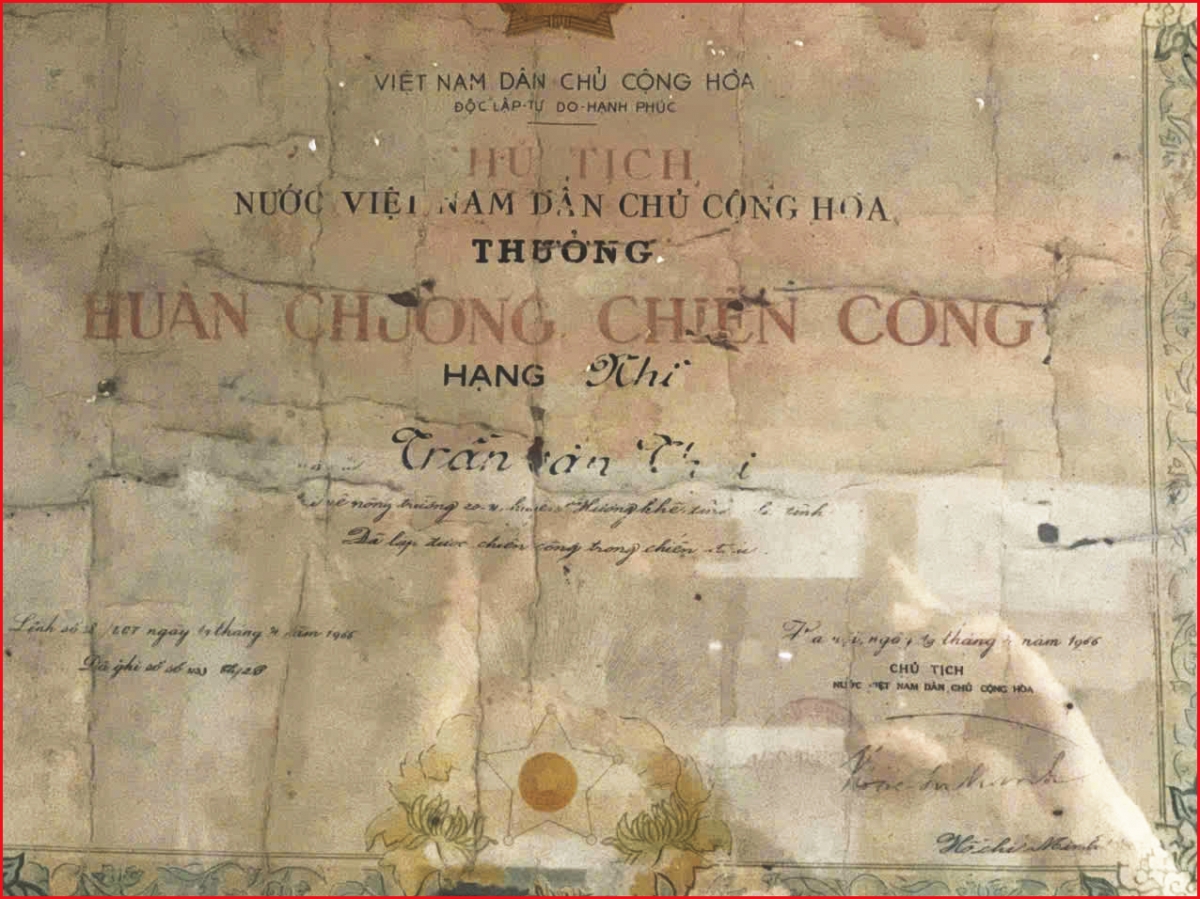 VIỆT NAM DÂN CHỦ CỘNG HÒA
ĐỘC LẬP-TỰ DO-HẠNH PHÚC
CHỦ TỊCH
NƯỚC VIỆT NAM DÂN CHỦ CỘNG HÒA
THƯỞNG
HUÂN CHƯƠNG CHIẾN CÔNG
HẠNG Nhì
Trần Văn
nông trường 20-4, huyện Hương khê, tỉnh tĩnh
Đã lập được chiến công trong chiến đấu.
Lệnh số /LCT ngày tháng năm 1966
Đã ghi sổ số
ngày tháng năm 1966
CHỦ TỊCH
NƯỚC VIỆT NAM DÂN CHỦ CỘNG HÒA
Hồ Chí Minh